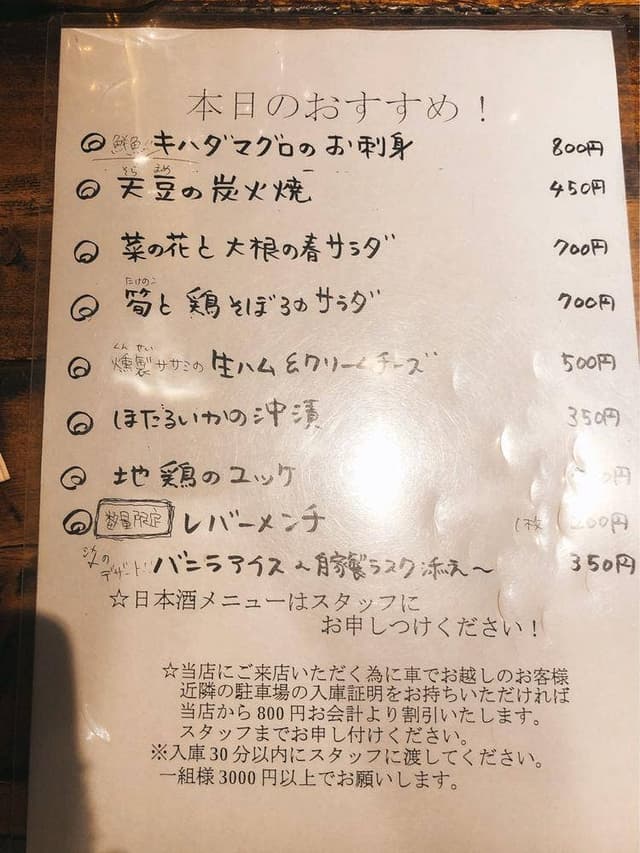 本日のおすすめ!
鮮魚!! キハダマグロのお刺身 800円
そら まめ
天豆の炭火焼 450円
菜の花と大根の春サラダ 700円
たけのこ
筍と鶏そぼろのサラダ 700円
くん せい
燻製ササミの生ハム&クリームチーズ 500円
ほたるいかの沖漬 350円
地鶏のユッケ
数量限定 レバーメンチ 1枚
デザート!! バニラアイス〜自家製ラスク添え〜 350円
☆日本酒メニューはスタッフに
お申しつけください!
☆当店にご来店いただく為に車でお越しのお客様
近隣の駐車場の入庫証明をお持ちいただければ
当店から800円お会計より割引いたします。
スタッフまでお申し付けください。
※入庫30分以内にスタッフに渡してください。
一組様3000円以上でお願いします。